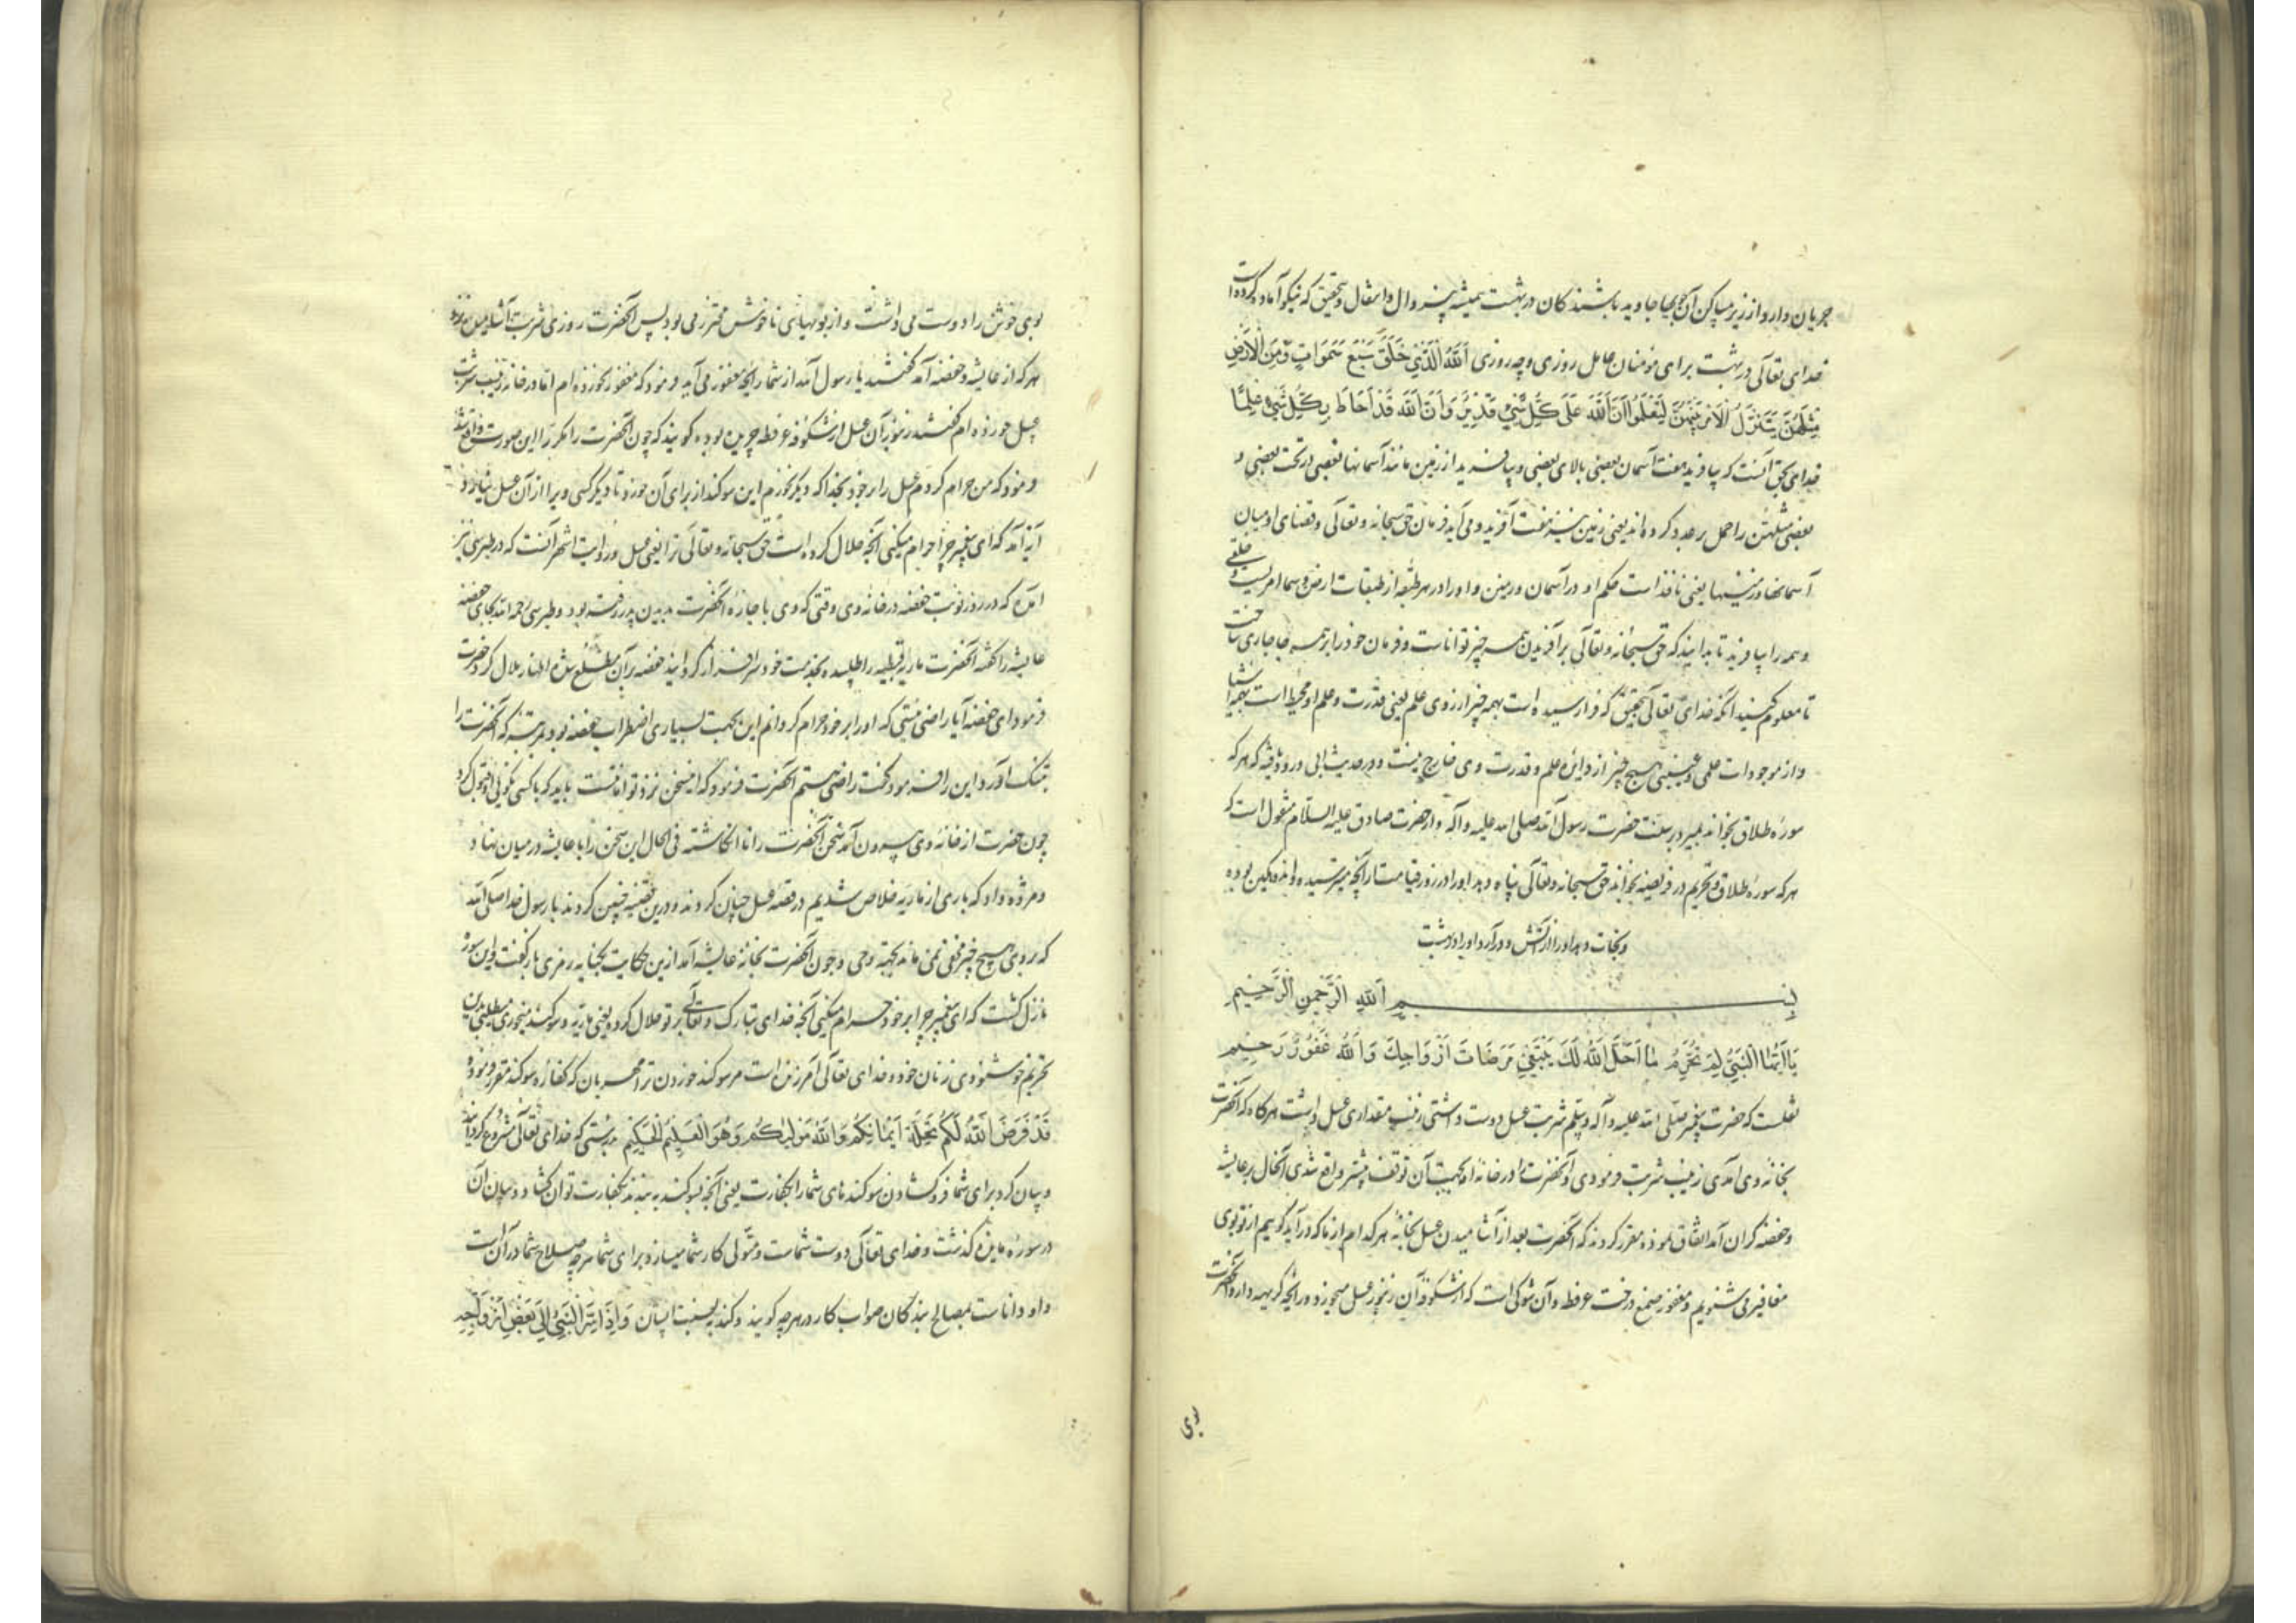 جریان دارد از زیر مساکن آن جویها جاوید باشندکان در بهشت همیشه بی زوال و انتقال و بتحقیق که نیکو آماده کرده است
خدای تعالی در بهشت برای مؤمنان عامل روزی و چه روزی اَللهُ الَّذی خَلَقَ سَبْعَ سَمَوَاتٍ وَمِنَ الْاَرْضِ
مِثْلَهُنَّ یَتَنَزَّلُ الْاَمْرُ بَیْنَهُنَّ لِتَعْلَمُوا اَنَّ اللهَ عَلَی کُلِّ شَیْءٍ قَدِیرٌ وَاَنَّ اللهَ قَدْ اَحَاطَ بِکُلِّ شَیْءٍ عِلْمًا
خدای بحق آنست که بیافرید هفت آسمان بعضی بالای بعضی و بیافرید از زمین مانند آسمانها بعضی در تحت بعضی و
بعضی مثلهن را حمل بر عدد کرده اند یعنی زمین نیز هفت آفرید و می آید فرمان حق سبحانه و تعالی و قضای او میان
آسمانها و زمینها یعنی نافذ است حکم او در آسمان و زمین و او را در هر طبقه از طبقات ارض و سما امریست و خلقی
و همه را بیافرید تا بدانید که حق سبحانه و تعالی بر آفریدن همه چیز توانا است و فرمان خود را بر همه جا جاری ساخت
تا معلوم کنید آنکه خدای تعالی بتحقیق که فرا رسیده است بهمه چیز از روی علم یعنی قدرت و علم او محیط است بهمه اشیا
و از موجودات علمی و عینی هیچ چیز از دایره علم و قدرت وی خارج نیست و در حدیث ابی ورود یافته که هر که
سوره طلاق بخواند بمیرد بر سنت حضرت رسول الله صلی الله علیه و آله و از حضرت صادق علیه السلام منقول است که
هر که سوره طلاق و تحریم در فریضه بخواند حق سبحانه و تعالی پناه دهد او را در روز قیامت از آنچه میترسیده و اندوهکین بوده
و نجات دهد او را از آتش و در آرد او را در بهشت
بِسْمِ اللهِ الرَّحْمنِ الرَّحیمِ
یَا اَیُّهَا النَّبِیُّ لِمَ تُحَرِّمُ مَا اَحَلَّ اللهُ لَکَ تَبْتَغِی مَرْضَاتَ اَزْوَاجِکَ وَاللهُ غَفُورٌ رَحِیمٌ
نقلست که حضرت پیغمبر صلی الله علیه و آله و سلم شربت عسل دوست داشتی زینب مقداری عسل داشت هرکاه که آنحضرت
بخانه وی آمدی زینب شربت فرمودی و آنحضرت را در خانه او بجهت آن توقف بیشتر واقع شدی آنحال بر عایشه
و حفصه کران آمد اتفاق نموده مقرر کردند که آنحضرت بعد از آشامیدن عسل بخانه هر کدام از ما که در آید کوییم از تو بوی
مغافیر می شنویم و مغفور صمغ درخت عرفط و آن شوکی است که از شکوفه آن زنبور عسل میخورد و رایحه کریهه دارد و آنحضرت
بوی
بوی خوش را دوست می داشت و از بویهای ناخوش محترز می بود پس آنحضرت روزی شربت آشامیدن نزد
هر که از عایشه و حفصه آمد کفتند یا رسول الله از شما رایحه مغفور می آید فرمود که مغفور نخورده ام اما در خانه زینب شربت
عسل خورده ام کفتند زنبور آن عسل از شکوفه عرفط چریده بوده کویند که چون آنحضرت را مکرر این صورت واقع شد
فرمود که من حرام کردم عسل را بر خود بخدا که دیکر نخورم این سوکند از برای آن خورد تا دیکر کسی ویرا از آن عسل نیارد
آیه آمد که ای پیغمبر چرا حرام میکنی آنچه حلال کرده است حق سبحانه و تعالی ترا یعنی عسل و روایت اشهر آنست که در طبرسی نیز
آمده که در روز نوبت حفصه در خانه وی وقتی که وی باجازه آنحضرت بدیدن پدر رفته بود و طبرسی رحمه الله بجای حفصه
عایشه را کفته آنحضرت ماریه قبطیه را طلبیده بخدمت خود سرافراز کردانید حفصه بر آن مطلع شده اظهار ملال کرد حضرت
فرمود ای حفصه آیا راضی نیستی که او را بر خود حرام کردانم این بجهت بسیاری اضطراب حفصه بود بمرتبه که آنحضرت را
بتنک آورد این را فرمود کفت راضی هستم آنحضرت فرمود که این سخن نزد تو امانتست باید که با کسی نکویی او قبول کرد
چون حضرت از خانه وی بیرون آمد سخن آنحضرت را نا انکاشته فی الحال این سخن را با عایشه در میان نهاد و
و مژده داد که باری از ماریه خلاص شدیم در قصه عسل چنان کردند و درین قضیه چنین کردند با رسول خدا صلی الله
که بر وی هیچ چیز مخفی نمی ماند بجهه وحی و چون آنحضرت بخانه عایشه آمد ازین حکایت بکنایه رمزی باز کفت و این سوره
نازل کشت که ای پیغمبر چرا بر خود حرام میکنی آنچه خدای تبارک و تعالی بر تو حلال کرده یعنی ماریه و سوکند میخوری میطلبی بدین
تحریم خوشنودی زنان خود و خدای تعالی آمرزنده است مر سوکند خوردن ترا مهربان که کفاره سوکند مقرر فرموده
قَدْ فَرَضَ اللهُ لَکُمْ تَحِلَّةَ اَیْمَانِکُمْ وَاللهُ مَوْلیٰکُمْ وَهُوَ الْعَلِیمُ الْحَکِیمُ بدرستی که خدای تعالی مشروع کردانید
و بیان کرد برای شما فرو کشادن سوکندهای شما را بکفارت یعنی آنچه بسوکند به بندند بکفارت توان کشاد و بیان آن
در سوره مایده کذشت و خدای تعالی دوست شماست و متولی کار شما میسازد برای شما هرچه صلاح شما در آن است
و او داناست بمصالح بندکان صواب کار در هرچه کوید و کند به نسبت ایشان وَاِذْ اَسَرَّ النَّبِیُّ اِلَی بَعْضِ اَزْوَاجِهِ